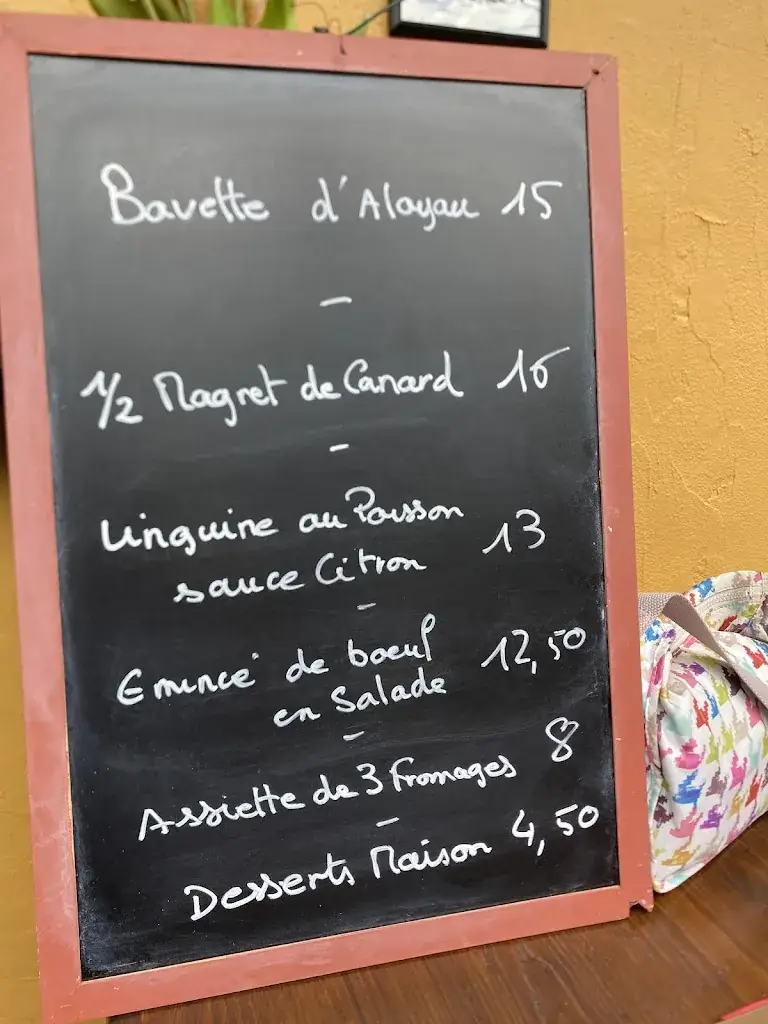 Bavette d'Aloyau 15
-
1/2 Magret de Canard 16
-
Linguine au Poisson
sauce Citron 13
-
Emincé de boeuf
en Salade 12,50
-
Assiette de 3 fromages 8
-
Desserts Maison 4,50